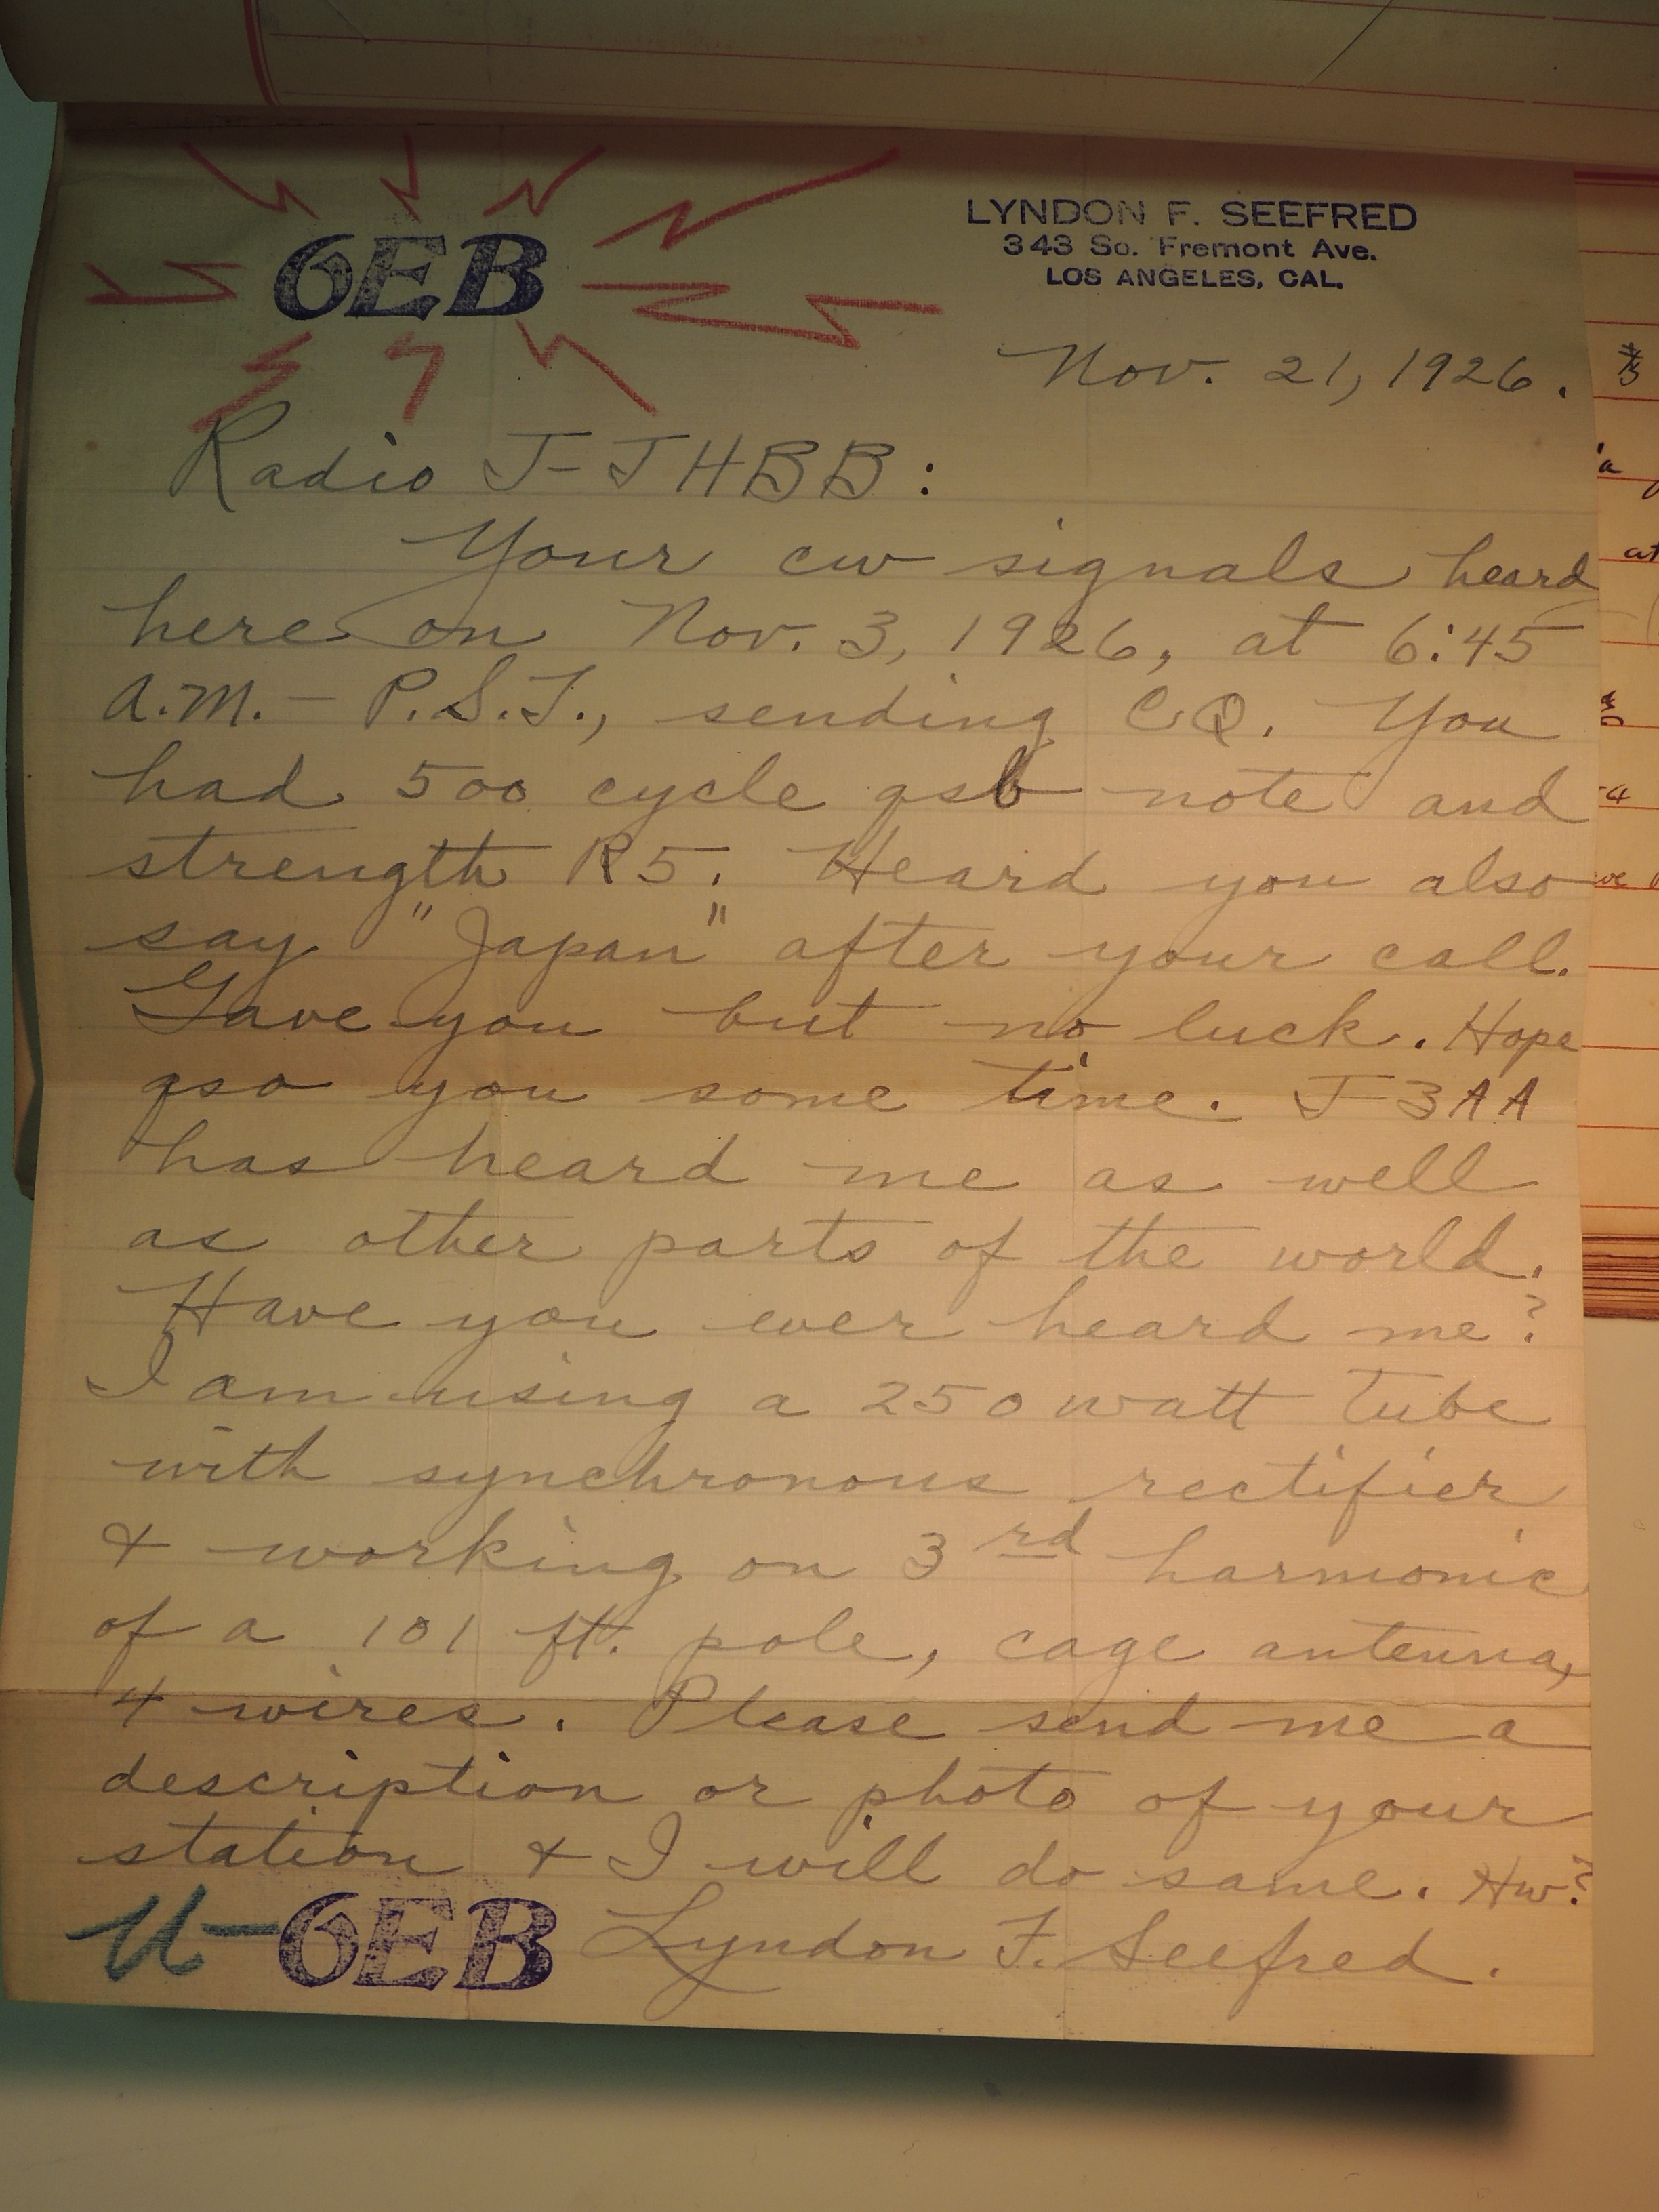 6EB
LYNDON F. SEEFRED
343 So. Fremont Ave.
LOS ANGELES, CAL.
Nov. 21, 1926.
Radio J-JHBB:
Your cw signals heard
here on Nov. 3, 1926, at 6:45
A.M. - P.S.T., sending CQ. You
had 500 cycle qsb note and
strength R5. Heard you also
say "Japan" after your call.
Gave you but no luck. Hope
qso you some time. J-3AA
has heard me as well
as other parts of the world.
Have you ever heard me?
I am using a 250 watt tube
with synchronous rectifier
& working on 3rd harmonic
of a 101 ft. pole, cage antenna,
4 wires. Please send me a
description or photo of your
station & I will do same. Hw?
U-6EB Lyndon F. Seefred.